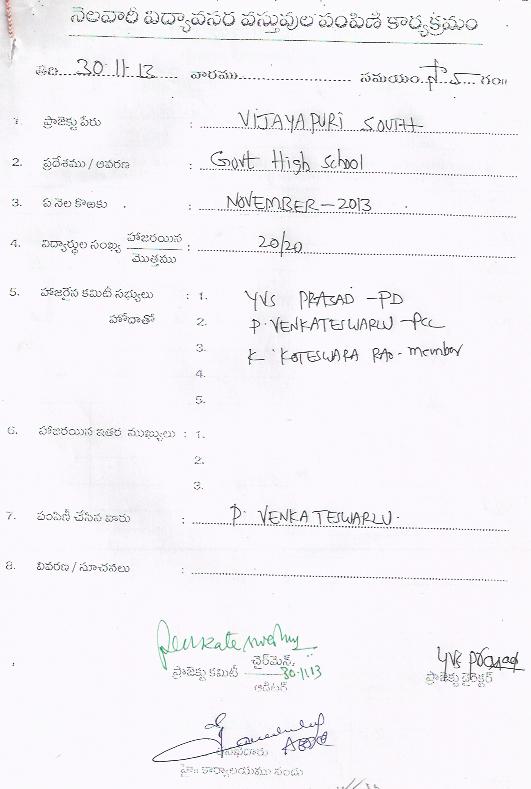 నెలవారీ విద్యావసర వస్తువుల పంపిణీ కార్యక్రమం
తేది 30.11.13 వారము సమయం గం॥
1. ప్రాజెక్టు పేరు : VIJAYAPURI SOUTH
2. ప్రదేశము / ఆవరణ : Govt High School
3. ఏ నెల కొఱకు : NOVEMBER - 2013
4. విద్యార్థుల సంఖ్య హాజరయిన / మొత్తము : 20/20
5. హాజరైన కమిటీ సభ్యులు : 1. YVS PRASAD - PD
హోదాతో 2. P. VENKATESWARLU - PCC
3. K. KOTESWARA RAO - member
4.
5.
6. హాజరయిన ఇతర ముఖ్యులు : 1.
2.
3.
7. పంపిణీ చేసిన వారు : P. VENKATESWARLU.
8. వివరణ / సూచనలు :
Venkateswarlu
ప్రాజెక్టు కమిటీ చైర్‌మెన్ / ఆడిటర్ 30-11-13
YVS Prasad
ప్రాజెక్టు డైరెక్టర్
కార్యాలయము నందు